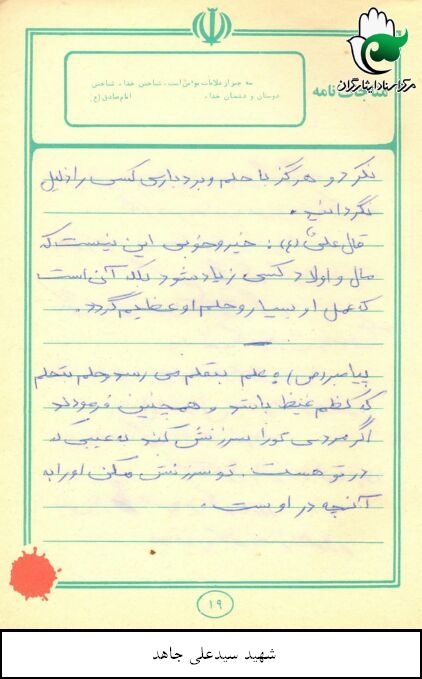 مرکز اسناد ایثارگران
مناجات نامه
سه چیز از علامات مؤمن است، شناختن خدا، شناختن
دوستان و دشمنان خدا. امام صادق (ع)
نکرد و هرگز با حلم و بردباری کسی را ذلیل
نگردانید.
قال علی (ع): خیر و خوبی این نیست که
مال و اولاد کسی زیاد شود بلکه آن است
که عمل او بسیار و حلم او عظیم گردد.
پیامبر (ص): علم بتعلم می رسد و حلم بتحلم
که کظم غیظ باشد و همچنین فرمودند
اگر مردی تو را سرزنش کند به عیبی که
در تو هست. تو سرزنش مکن او را به
آنچه در اوست.
۱۹
شهید سیدعلی جاهد